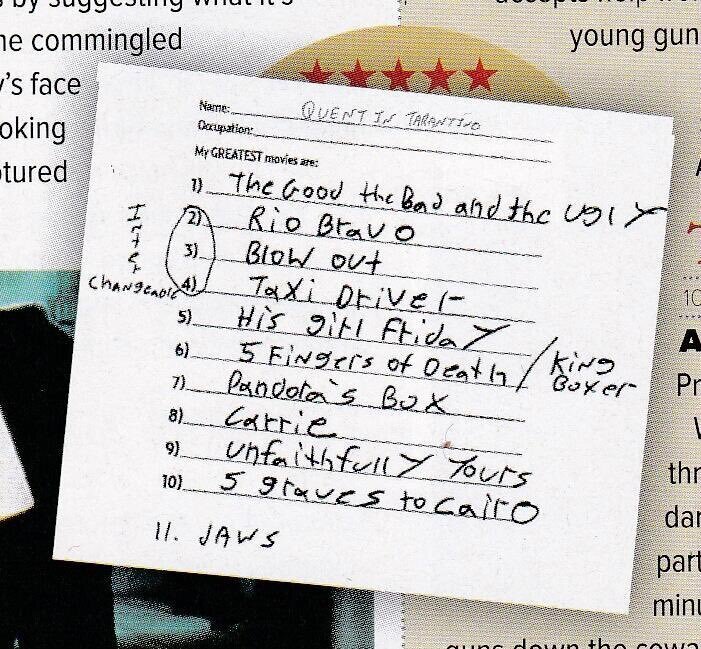 s by suggesting what it's
he commingled
y's face
oking
tured
accepts help
young gun
Name: QUENTIN TARANTINO
Occupation:
My GREATEST movies are:
1) The Good the Bad and the Ugly
2) Rio Bravo
3) Blow out
4) Taxi Driver
Interchangeable
5) His girl Friday
6) 5 Fingers of Death / King Boxer
7) Pandora's Box
8) Carrie
9) Unfaithfully Yours
10) 5 graves to Cairo
11. JAWS
10
A
Pr
thr
dar
part
minu
guns down the cowa